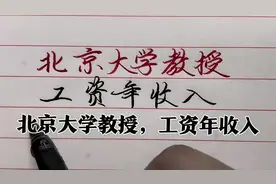 北京大学教授
工资年收入
北京大学教授，工资年收入